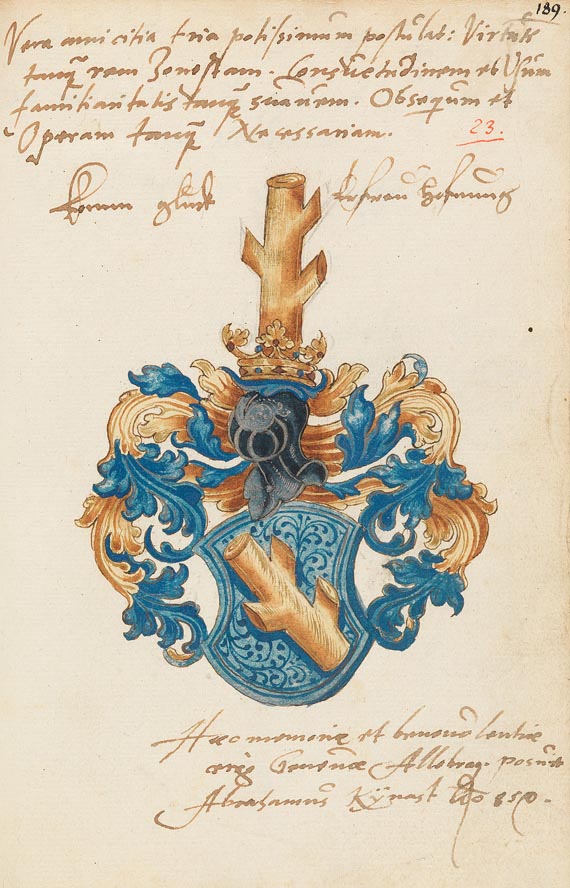 189.
Vera amicitia tria potissimum postulat: Virtutē
tanq̃ rem Honestam. Consuetudinem et Usum
familiaritatis tanq̃ suavem. Obsequium et
Operam tanq̃ Necessariam.
23.
Komm glück Erfrew hofnung
Haec memoriae et benevolentiae
ergo Genevae Allobrog. posuit
Abrahamus Kÿnast